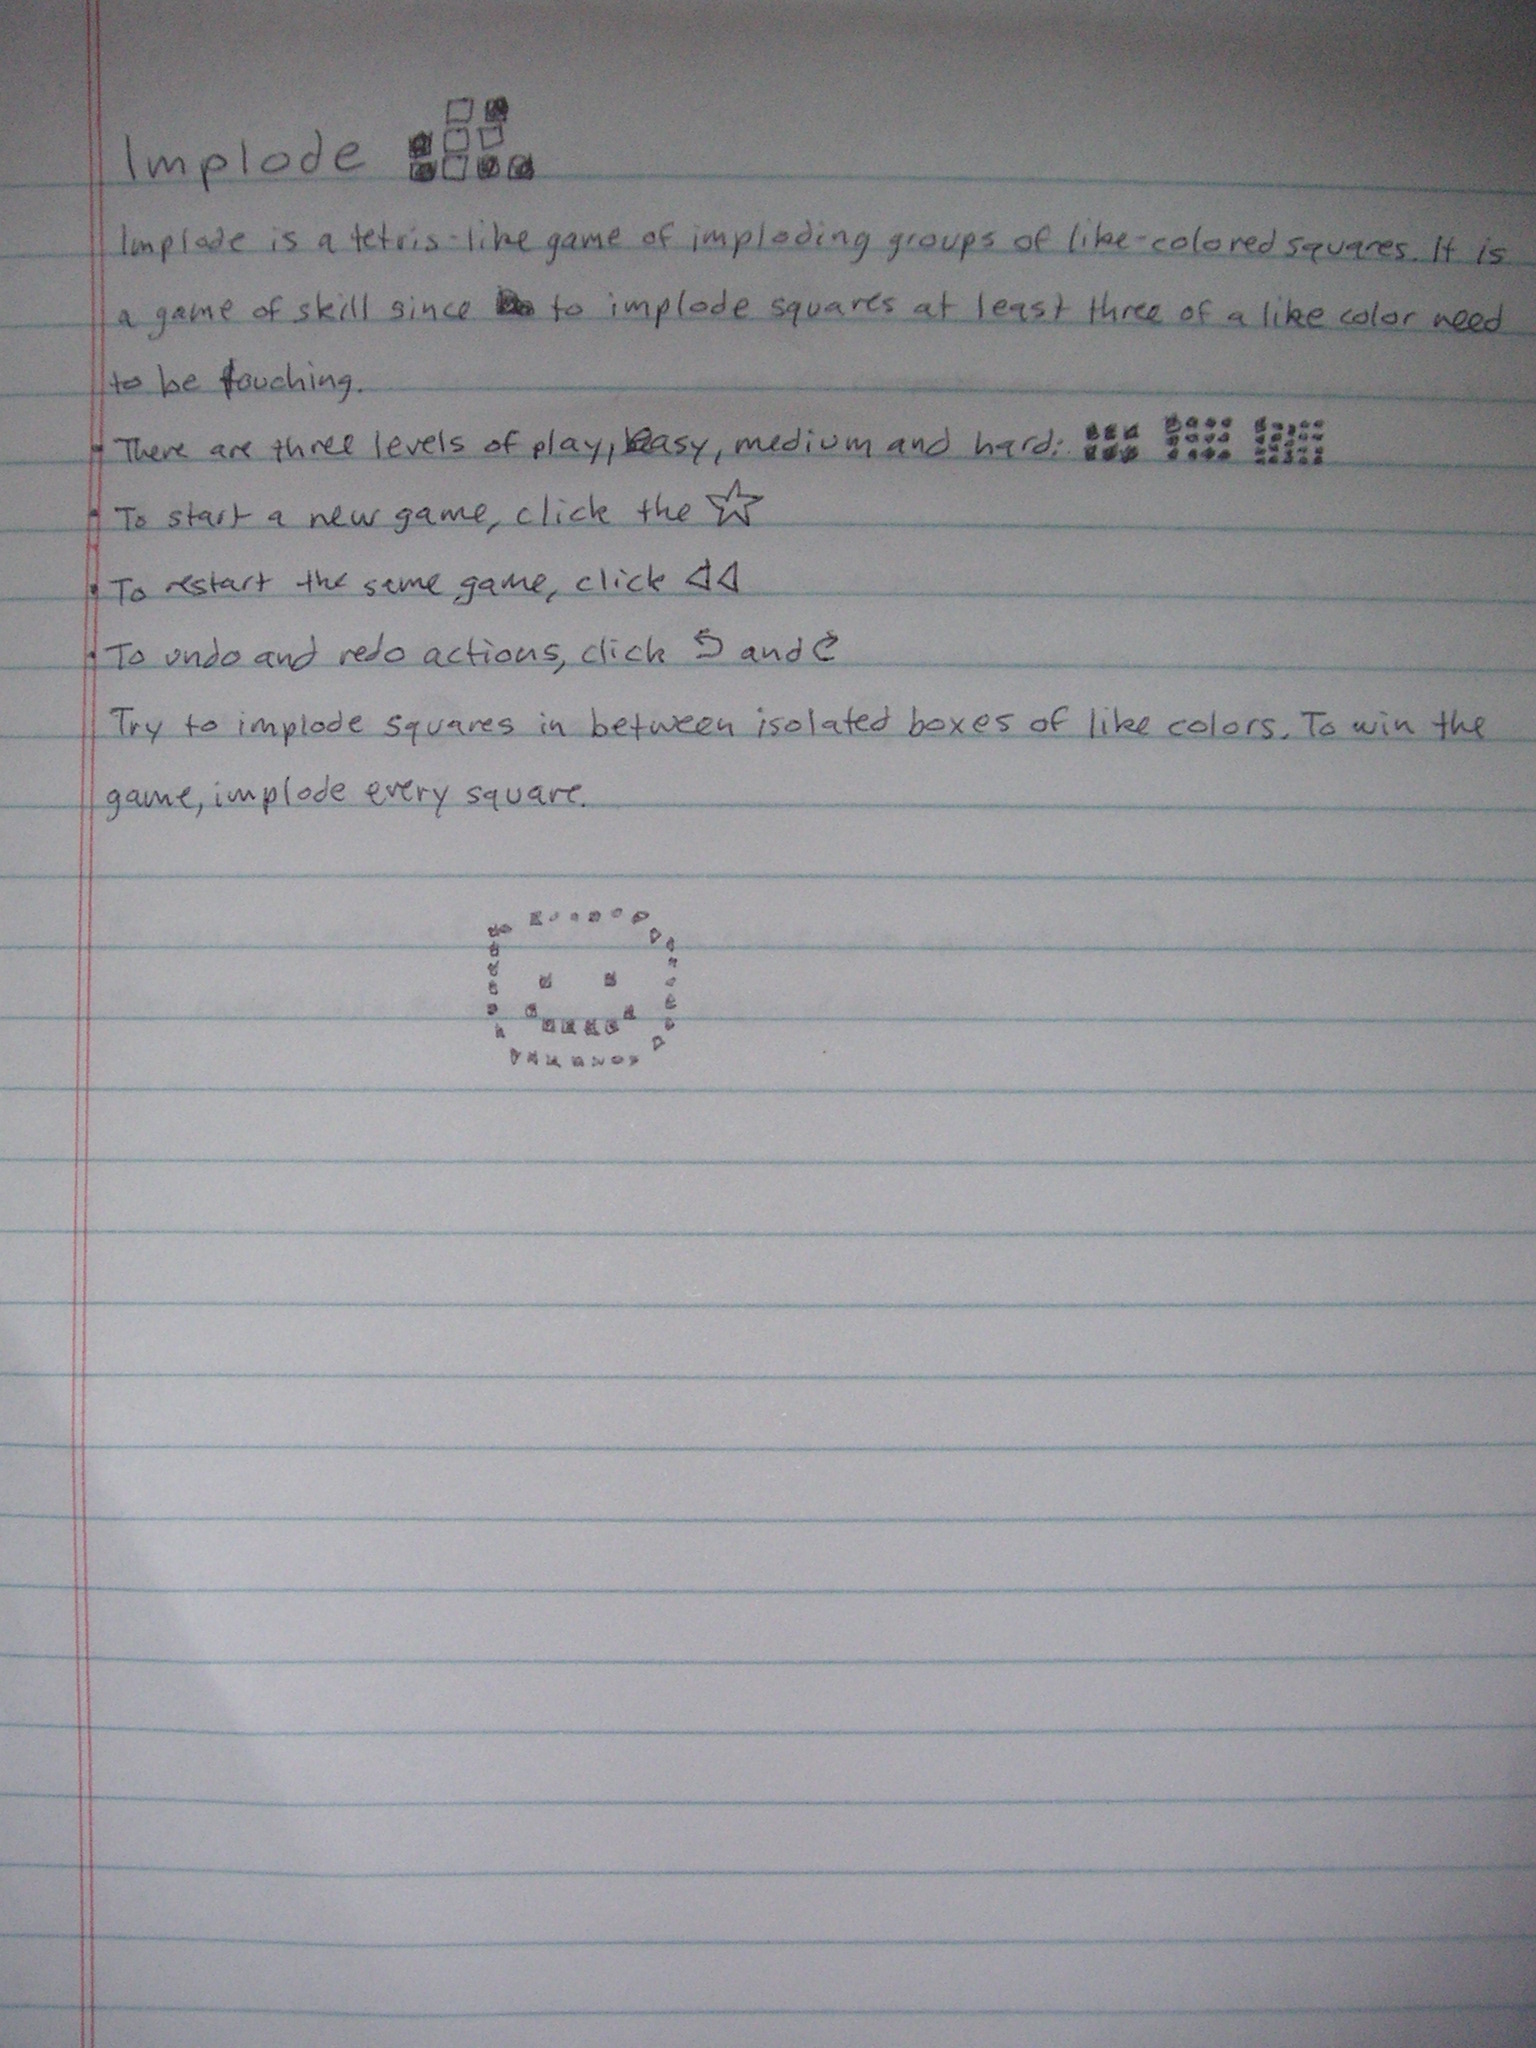 Implode
Implode is a tetris-like game of imploding groups of like-colored squares. It is
a game of skill since to implode squares at least three of a like color need
to be touching.
• There are three levels of play, easy, medium and hard:
• To start a new game, click the ☆
• To restart the same game, click ◁◁
• To undo and redo actions, click ↶ and ↷
Try to implode squares in between isolated boxes of like colors. To win the
game, implode every square.